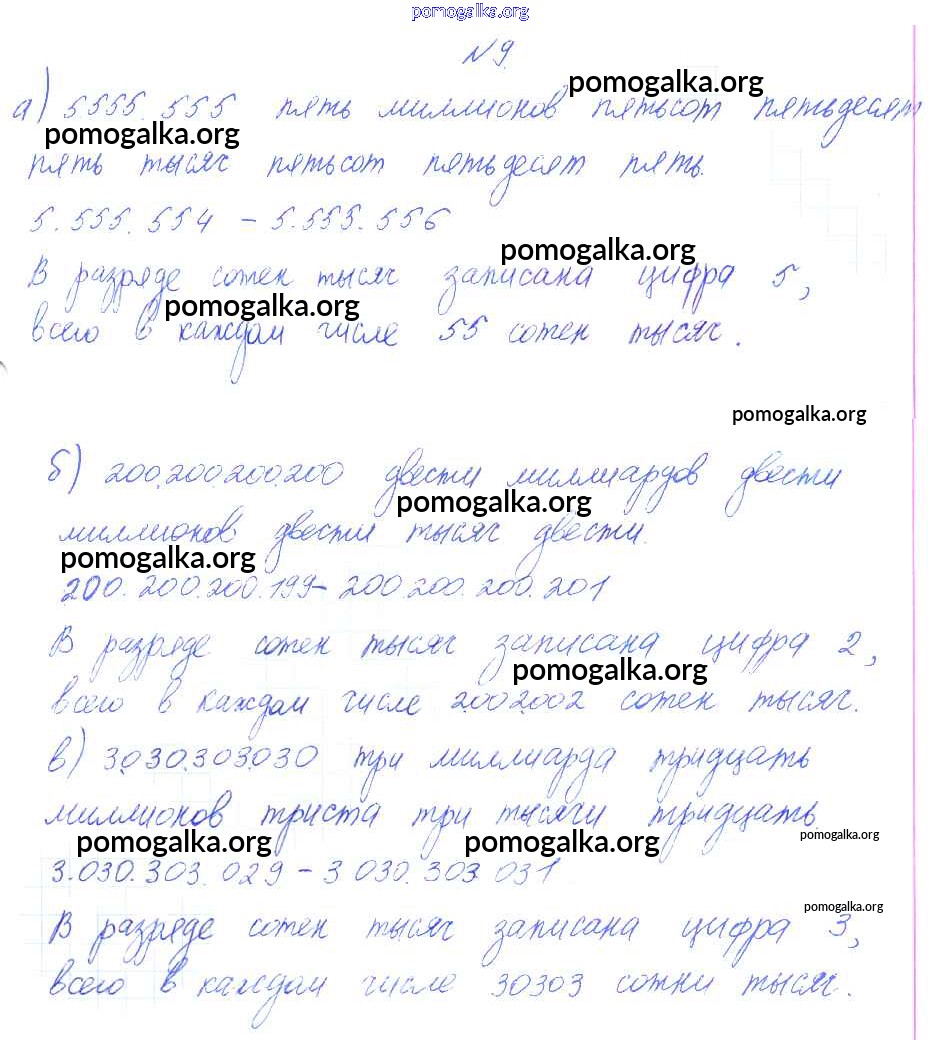 pomogalka.org
№9.
pomogalka.org
а) 5.555.555 пять миллионов пятьсот пятьдесят
pomogalka.org
пять тысяч пятьсот пятьдесят пять.
5.555.554 – 5.555.556
pomogalka.org
В разряде сотен тысяч записана цифра 5,
pomogalka.org
всего в каждом числе 55 сотен тысяч.
pomogalka.org
б) 200.200.200.200 двести миллиардов двести
pomogalka.org
миллионов двести тысяч двести.
pomogalka.org
200.200.200.199 – 200.200.200.201
В разряде сотен тысяч записана цифра 2,
pomogalka.org
всего в каждом числе 2.002.002 сотен тысяч.
в) 3.030.303.030 три миллиарда тридцать
миллионов триста три тысячи тридцать
pomogalka.org pomogalka.org pomogalka.org
3.030.303.029 – 3 030.303 031
pomogalka.org
В разряде сотен тысяч записана цифра 3,
всего в каждом числе 30303 сотни тысяч.